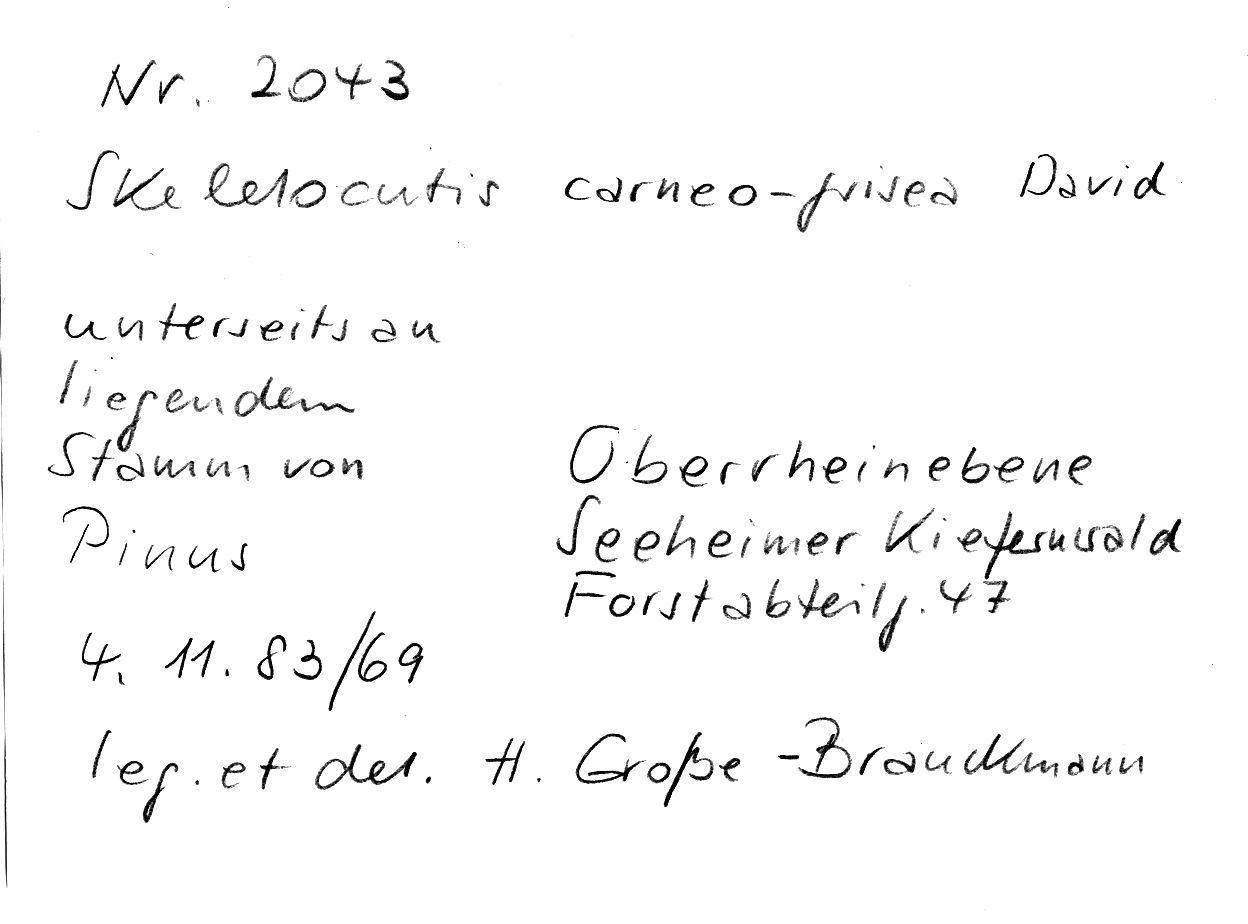 Nr. 2043
Skeletocutis carneo-grisea David
unterseits an
liegendem
Stamm von
Pinus
Oberrheinebene
Seeheimer Kiefernwald
Forstabteilg. 47
4. 11. 83/69
leg. et det. H. Große-Brauckmann